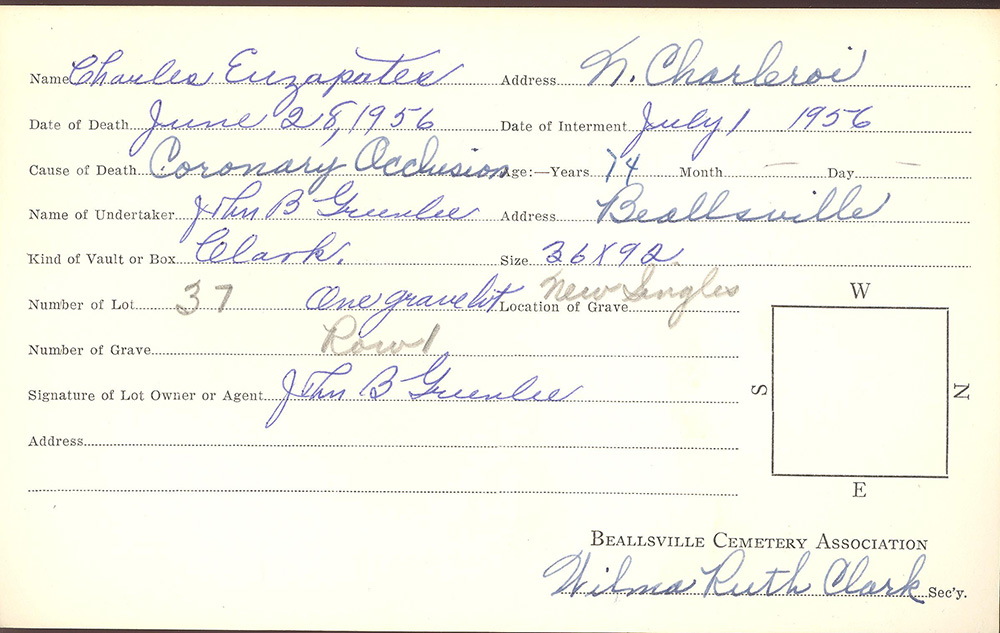 Name Charles Enzapates Address N. Charleroi
Date of Death June 28, 1956 Date of Interment July 1 1956
Cause of Death Coronary Occlusion Age:—Years 74 Month — Day —
Name of Undertaker John B Greenlee Address Beallsville
Kind of Vault or Box Clark. Size 36 X 92
Number of Lot 37 One grave lot Location of Grave New Singles
Number of Grave Row 1
Signature of Lot Owner or Agent John B Greenlee
Address
W
S N
E
BEALLSVILLE CEMETERY ASSOCIATION
Wilma Ruth Clark Sec'y.